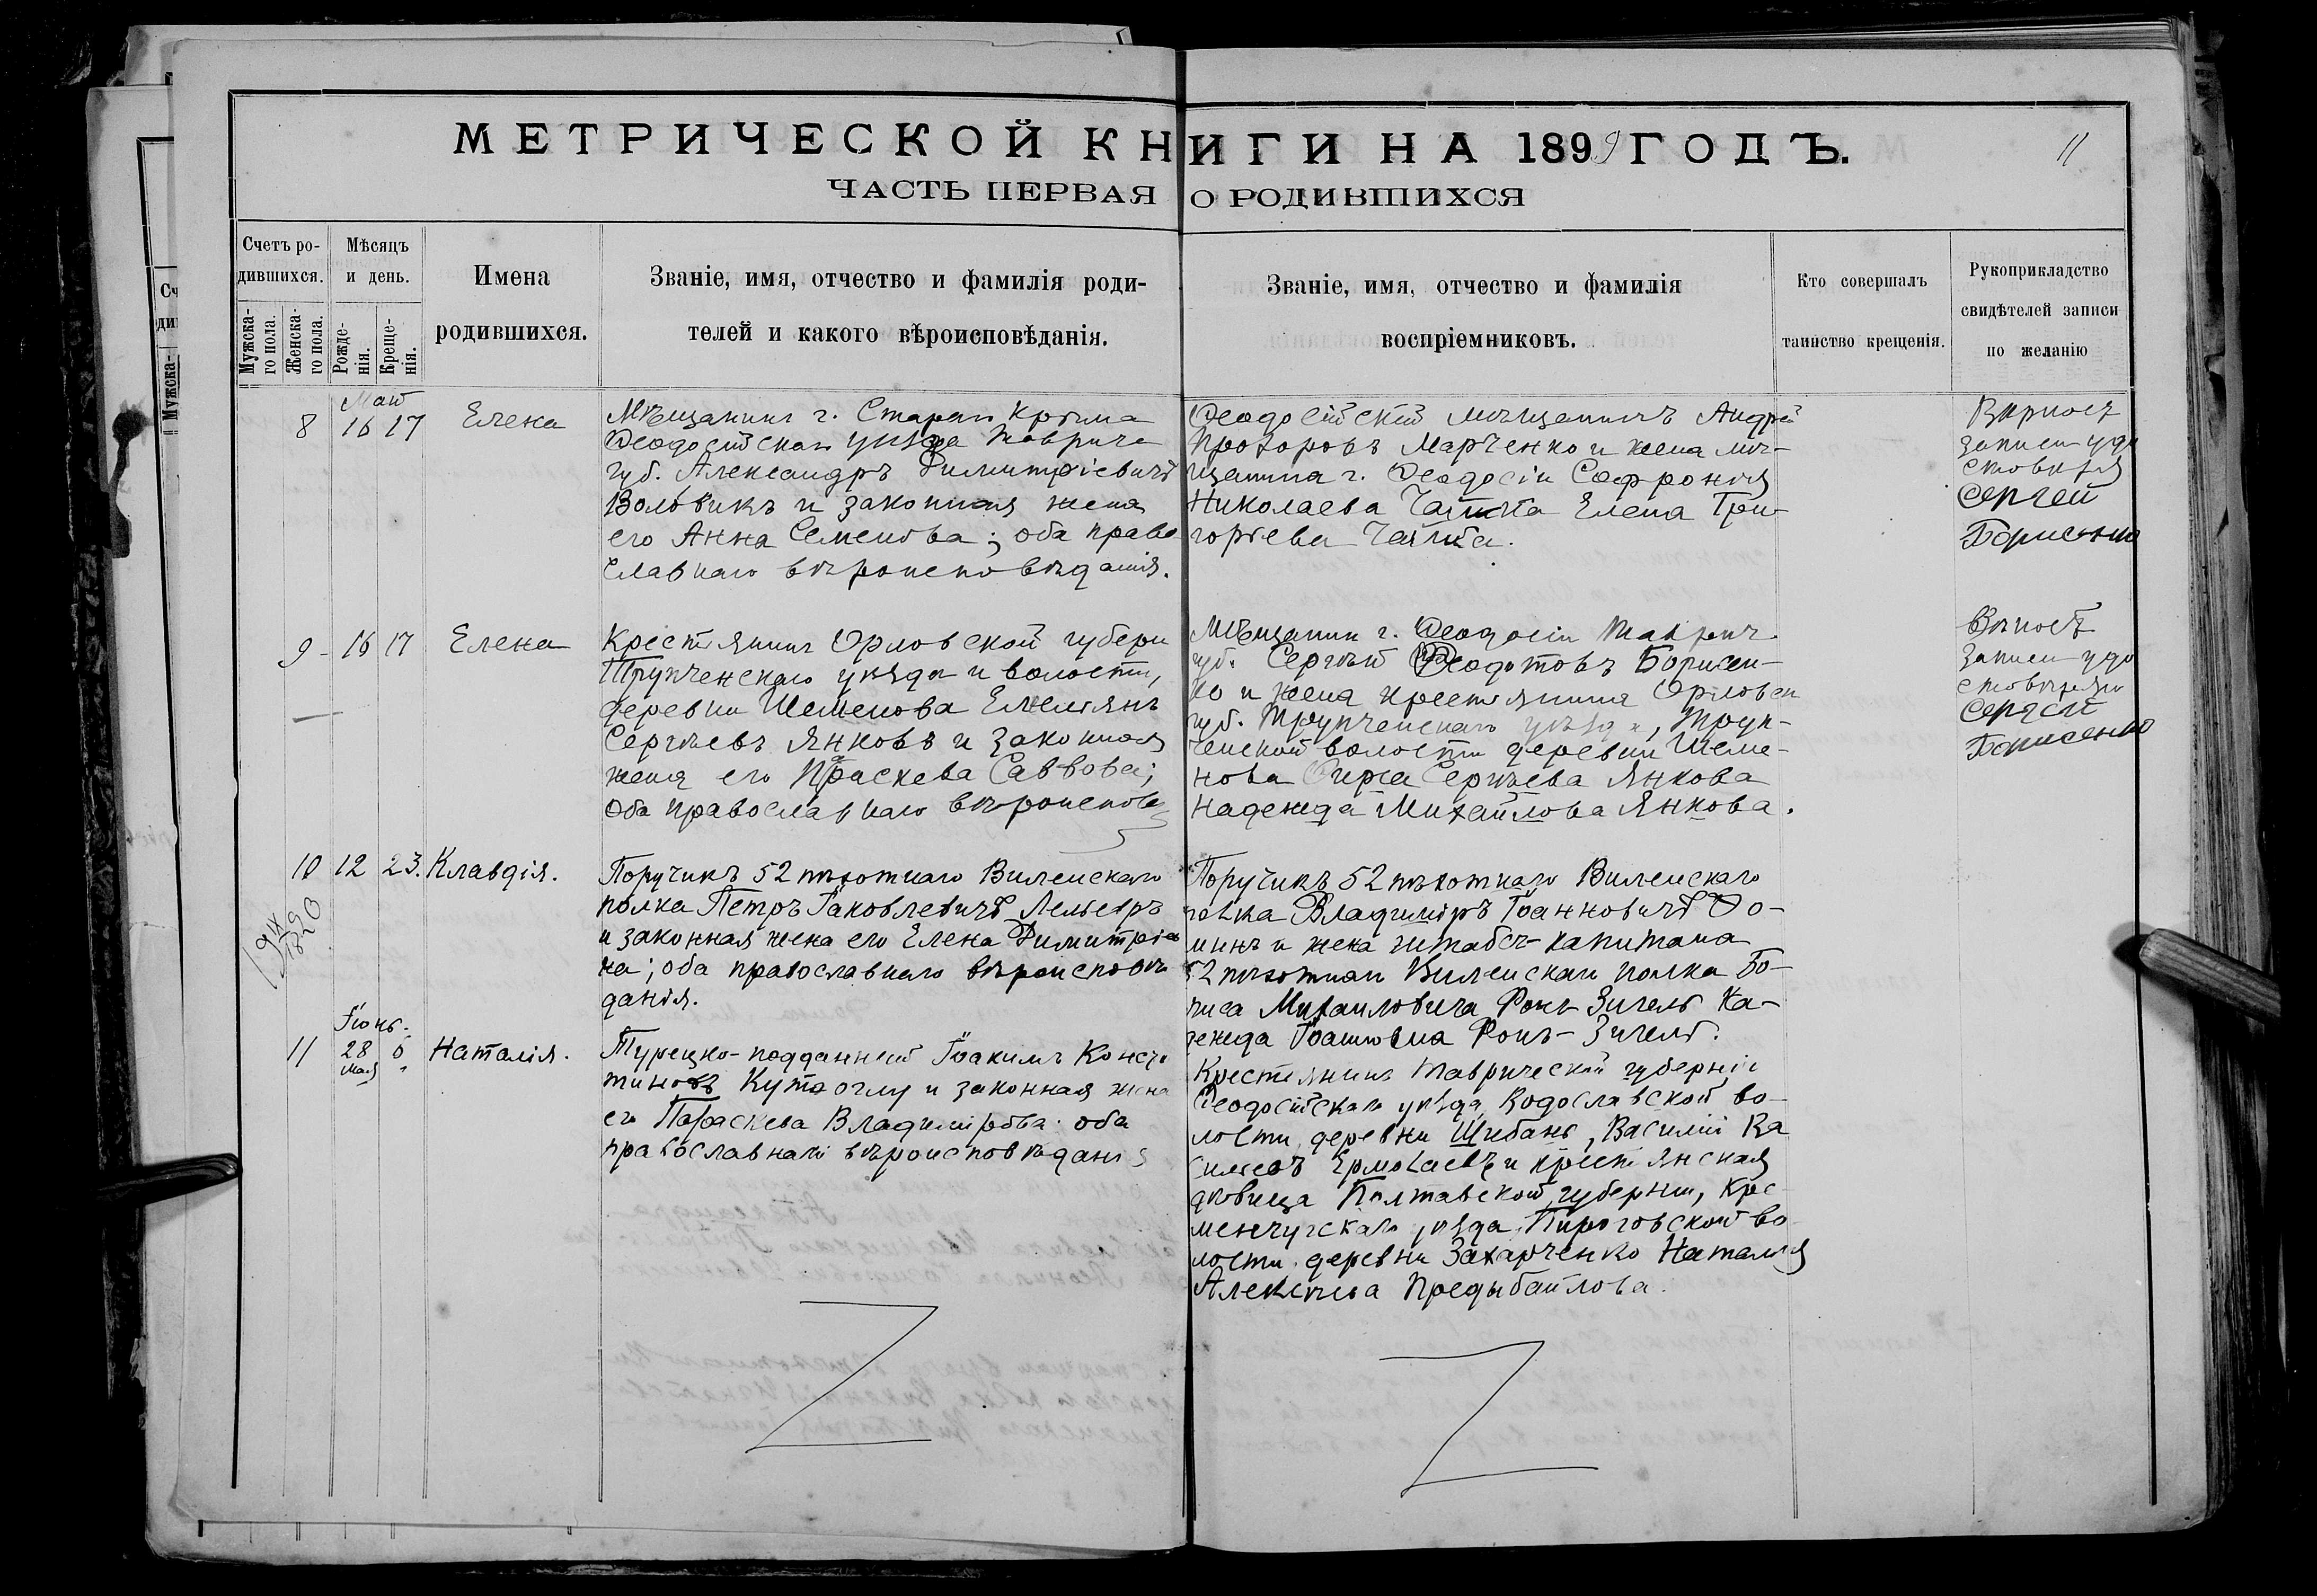 МЕТРИЧЕСКОЙ КНИГИ НА 1899 ГОДЪ.
11
ЧАСТЬ ПЕРВАЯ О РОДИВШИХСЯ
Счетъ ро-
дившихся.
Мужска-
го пола.
Женска-
го пола.
Мѣсяцъ
и день.
Рожде-
нія.
Креще-
нія.
Имена
родившихся.
Званіе, имя, отчество и фамилія роди-
телей и какого вѣроисповѣданія.
Званіе, имя, отчество и фамилія
воспріемниковъ.
Кто совершалъ
таинство крещенія.
Рукоприкладство
свидѣтелей записи
по желанію
Май
8 16 17 Елена
Мѣщанинъ г. Стараго Крыма
Ѳеодосійскаго уѣзда Тавриче
губ. Александръ Димитріевичъ
Воловикъ и законная жена
его Анна Семенова; оба право
славнаго вѣроисповѣданія.
Ѳеодосійскій мѣщанинъ Андрей
Прохоровъ Марченко и жена мѣ-
щанина г. Ѳеодосіи Софронія
Николаева Елена Гри-
горьева
Вѣрность
записи удо
стовѣряю
Сергей
Борисенко
9 - 16 17 Елена
Крестьянинъ Орловской губерн
Трупченскаго уѣзда и волости,
деревни Шеменова Емельянъ
Сергѣевъ Янковъ и законная
жена его Праскева Саввова;
оба православнаго вѣроисповѣ
Мѣщанин г. Ѳеодосіи Таврич.
губ. Сергѣй Ѳеодотовъ Борисен-
ко и жена крестьянина Орловск
губ. Трупченскаго уѣзда, Труп-
ченской волости деревни Шеме-
нова Сергѣева Янкова
Надежда Михайлова Янкова.
Вѣрность
записи удо
стовѣряю
Сергей
Борисенко
10 12 23. Клавдія.
Поручикъ 52 пѣхотнаго Виленскаго
полка Петръ Іаковлевичъ
и законная жена его Елена Димитріев
на; оба православнаго вѣроисповѣ
данія.
Поручикъ 52 пѣхотнаго Виленскаго
полка Владиміръ Іоанновичъ Ѳо-
минъ и жена штабсъ-капитана
52 пѣхотнаго Виленскаго полка Бо-
риса Михаиловича Фонъ-Зигель На-
дежда Іоанновна Фонъ-Зигель.
Іюнь.
11 28 6 Наталія.
Мая
Турецко-подданный Іоакимъ Конста
тиновъ Кутаоглу и законная жена
его Параскева Владимірова. оба
православнаго вѣроисповѣданія
Крестьянинъ Таврической губерніи
Ѳеодосійскаго уѣзда, Водославской во-
лости, деревни Шибань, Василій Ва
сильевъ Ермолаевъ и крестьянская
дѣвица Полтавской губерніи, Кре-
менчугскаго уѣзда, Пироговской во
лости. деревни Захарченко Наталія
Алексѣева